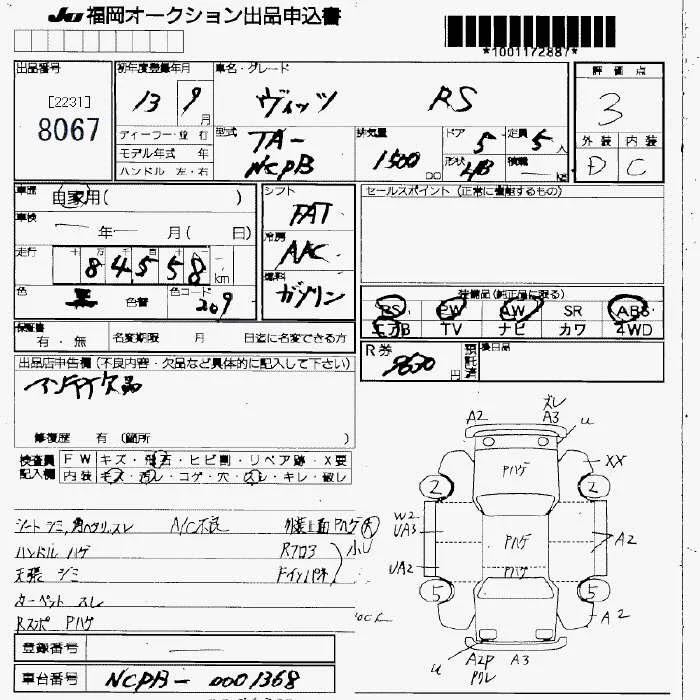 JU 福岡オークション出品申込書
*1001172887*
出品番号
[2231]
8067
初年度登録年月
13 9月
車名・グレード
ヴィッツ RS
評価点
3
外装 内装
D C
ディーラー・並行
モデル年式 年
ハンドル 左・右
型式
TA-
NCP13
排気量
1500
cc
ドア
5
定員
5人
形状
4B
積載
kg
車歴
自家用( )
車検
年 月 ( 日)
走行
84558 km
色
黒
色替
色コード
209
シフト
FAT
冷房
A/C
燃料
ガソリン
セールスポイント (正常に機能するもの)
装備品(純正品に限る)
PS PW AW SR ABS
エアB TV ナビ カワ 4WD
保証書
有・無
名変期限 月 日迄に名変できる方
R券
円
預託済
後日品
出品店申告欄(不良内容・欠品など具体的に記入して下さい)
アンテナ欠品
修復歴 有 (箇所 )
検査員
記入欄
FWキズ・飛石・ヒビ割・リペア跡・X要
内装 キズ・汚レ・コゲ・穴・スレ・キレ・破レ
シート シミ,
スレ
A/C不良
ハンドル ハゲ
天張 シミ
カーペット スレ
Rスポ Pハゲ
A2
ズレ
A3
U
Pハゲ
XX
2
2
W2
UA3
Pハゲ
A2
UA2
Pハゲ
5
5
A2
U
A2P
A3
登録番号
車台番号
NCP13-0001368